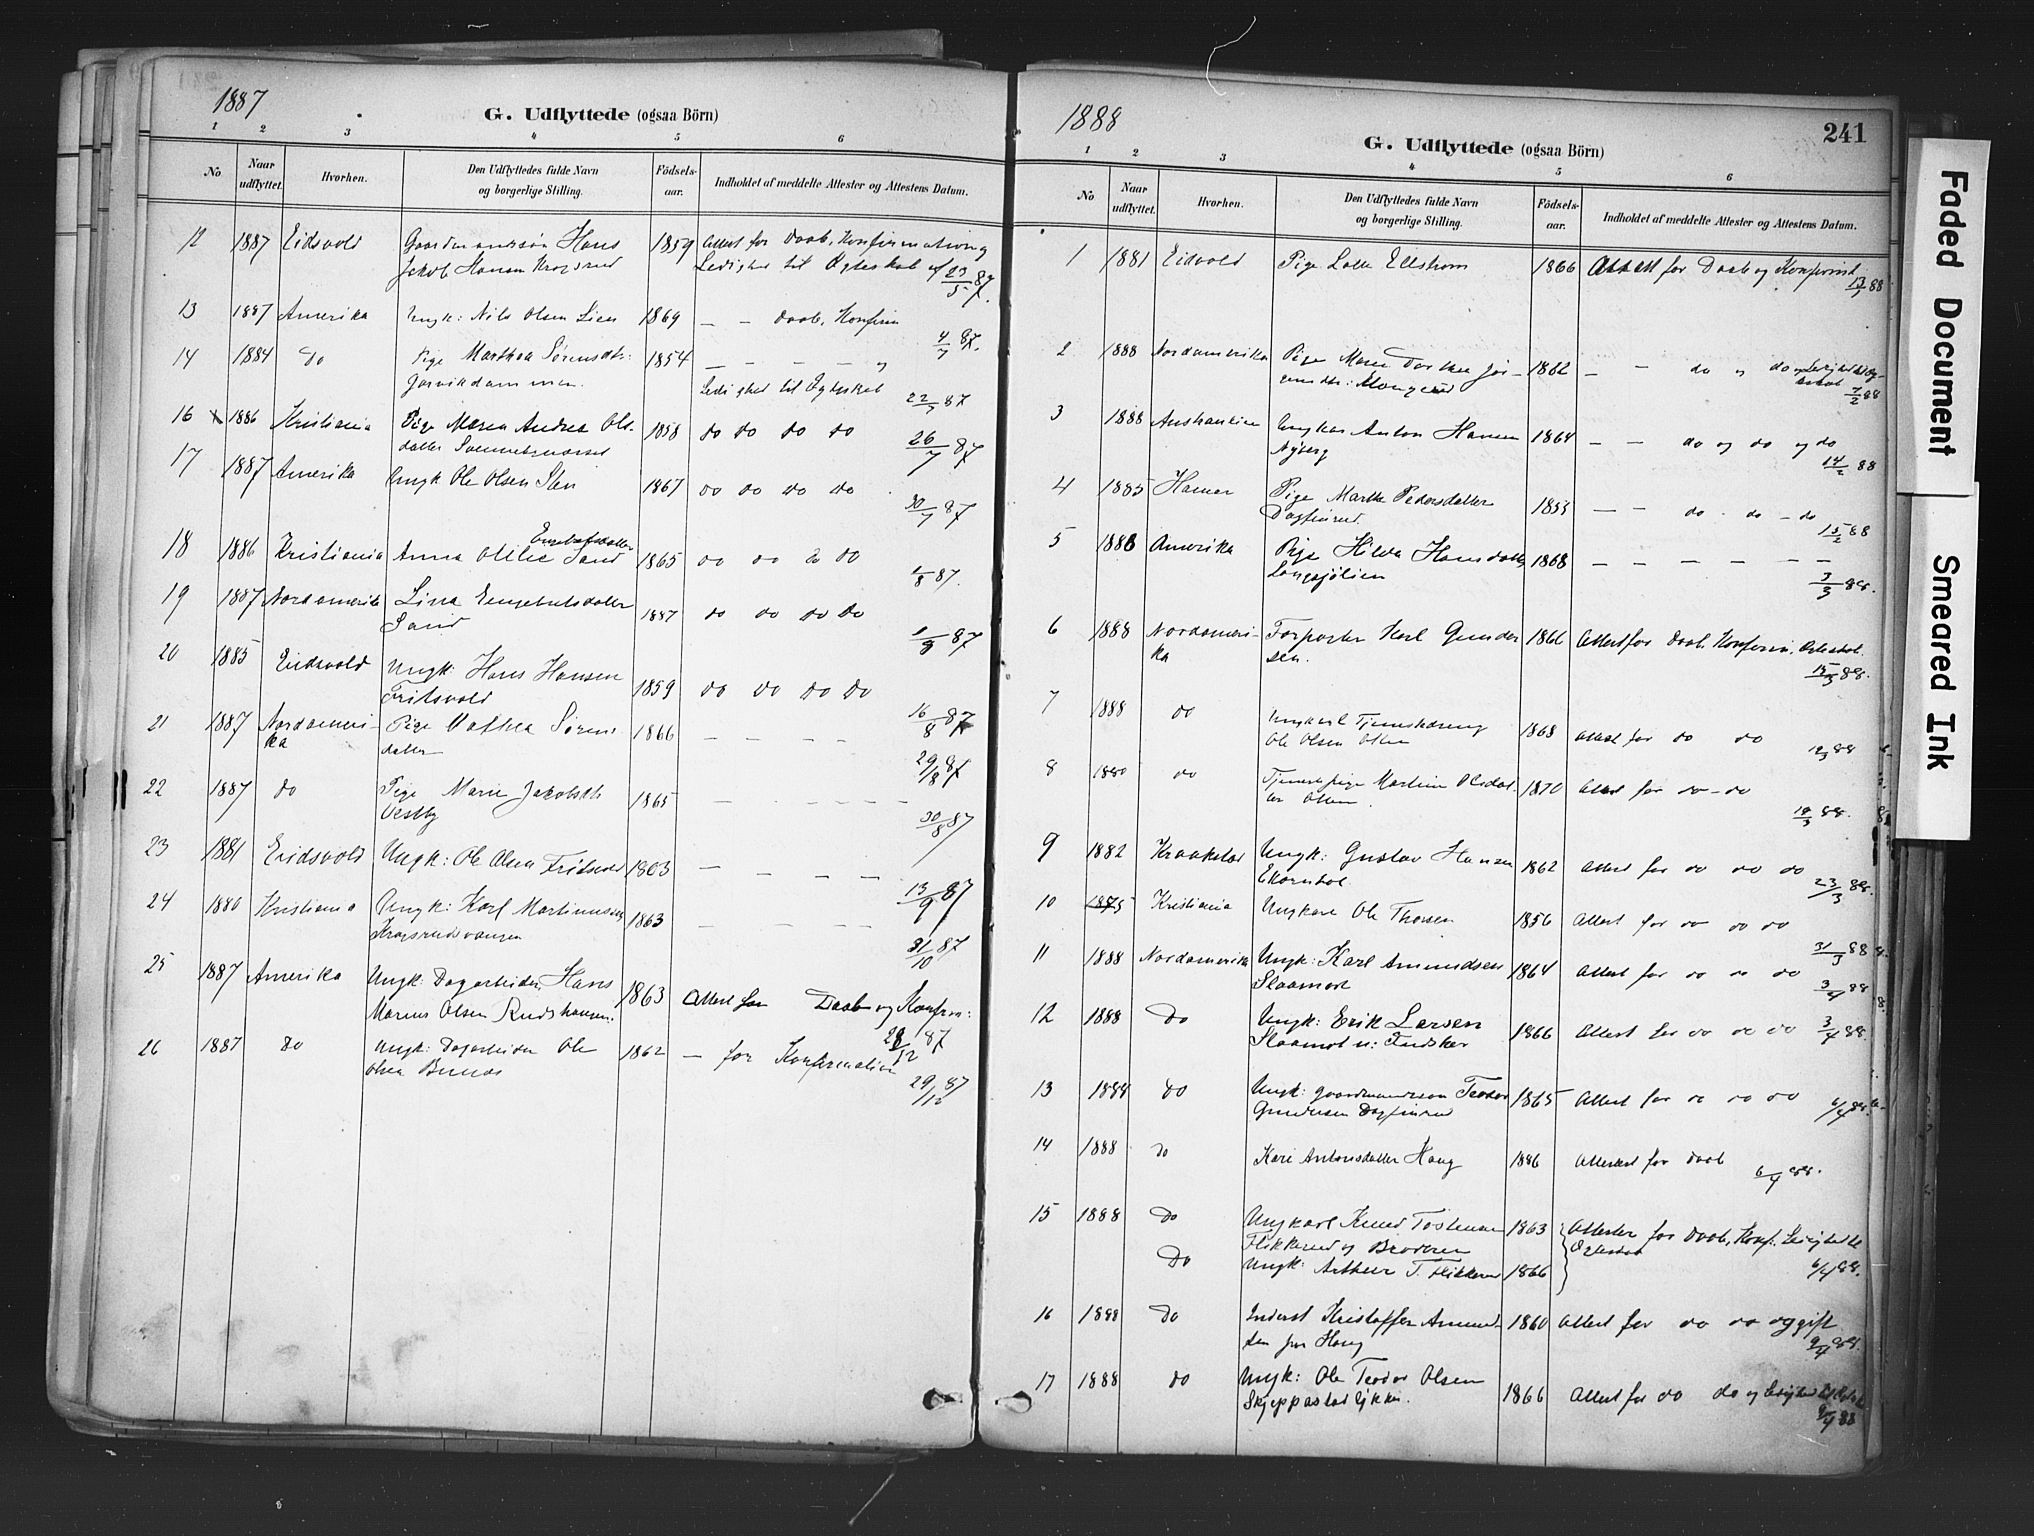 1887
G. Udflyttede (ogsaa Börn)
1 2 3 4 5 6
No Naar udflyttet. Hvorhen. Den Udflyttedes fulde Navn og borgerlige Stilling. Födsels-aar. Indholdet af meddelte Attester og Attestens Datum.
12 1887 Eidsvold Gaardmandssön Hans 1859 Attest for Daab, Konfirmation og
Jakob Hansen Krogsrud Ledighed til Ægteskab af 23/5 87.
13 1887 Amerika Ungk: Nils Olsen Lien 1869 — — Daab, Konfirm
4/7 87.
14 1884 do Pige Marthea Sörensdtr: 1854 — — — — og
Ledighed til Ægteskab
22/7 87
16 1886 Kristiania Pige Maren Andrea Ols- 1858 do do do do
datter 26/7 87
17 1887 Amerika Ungk Ole Olsen Lien 1867 do do do do
30/7 87
Engebretsdatter
18 1886 Kristiania Anna Otilie Sand 1865 do do do do
1/8 87.
19 1887 Nordamerika Lina Engebretsdatter 1887 do do do do
Sand 1/9 87
20 1885 Eidsvold Ungk: Hans Hansen 1859 do do do do
Fritsvold
16/8 87
21 1887 Nordameri- Pige Mathea Sörens 1866 — — — —
ka datter
29/8 87
22 1887 do Pige Marie Jakobsdtr 1865 — — — —
Vestby 30/8 87
23 1881 Eidsvold Ungk: Ole Olsen 1863 — — — —
13/9 87
24 1880 Kristiania Ungk: Karl Martinussen 1863 — — — —
Krogsrudsvangen
31/10 87
25 1887 Amerika Ungk: Dagarbeider Hans 1863 Attest for Daab og Konfirm:
Marius Olsen Rudshaugen. 28/12 87
26 1887 do Ungk: Dagarbeider Ole 1862 — for Konfirmation
Olsen 29/12 87
1888
241
G. Udflyttede (ogsaa Börn)
1 2 3 4 5 6
No Naar udflyttet. Hvorhen. Den Udflyttedes fulde Navn og borgerlige Stilling. Födsels-aar. Indholdet af meddelte Attester og Attestens Datum.
1 1881 Eidsvold Pige Lotte Ellström 1866 Attest for Daab og Konfirmat
13/1 88
2 1888 Nordamerika Pige Maren Dorthea Jör- 1862 — — do og do og Ledighed til Æg-
teskab 7/2 88
3 1888 Ungkar Anton Hansen 1864 — — do og do og do
Nyberg 14/2 88
4 1885 Hamar Pige Marthe Pedersdatter 1853 — — do - do - do
Dagfinrud. 15/2 88
5 1888 Amerika Pige Hilda Hansdatter 1868 — — — — — —
3/3 88.
6 1888 Nordameri- Karl Gunder 1866 Attest for Daab, Konfirm,
ka sen. 15/3 88.
7 1888 do Ungkarl Tjenestedreng 1868 Attest for do do
Ole Olsen 19/3 88
8 1880 do Tjenestepige Martine Olsdat- 1870 Attest for do - do
ter 19/3 88.
9 1882 Kraakstad Ungk: Gustav Hansen 1862 Attest for do do do
23/3 88.
10 1885 Kristiania Ungkarl Ole Thorsen 1856 Attest for do do do
31/3 88
11 1888 Nordamerika Ungk: Karl Amundsen 1864 Attest for do do do
Slaamot 3/4 88
12 1888 do Ungk: Erik Larsen 1866 Attest for do do do 3/4 88.
Slaamot
13 1888 do Ungk: Gaardmandsson Teodor 1865 Attest for do do do 6/4 88.
Gundersen Dagfinrud
14 1888 do Kari Antonsdatter Haug 1886 Attest for Daab
6/4 88.
15 1888 do Ungkarl Knud Tostensen 1863 Attester for Daab, Konf: Ledighed til
Flikkerud og Broderen Ægteskab
do Ungk: Arthur T. Flikkerud 1866 6/4 88.
16 1888 do Inderst Kristoffer Amund- 1860 Attest for do do og gift
sen fra Haug 9/4 88.
17 1888 do Ungk: Ole Teodor Olsen 1866 Attest for do do og Ledighed til
9/4 88
Faded Document
Smeared Ink